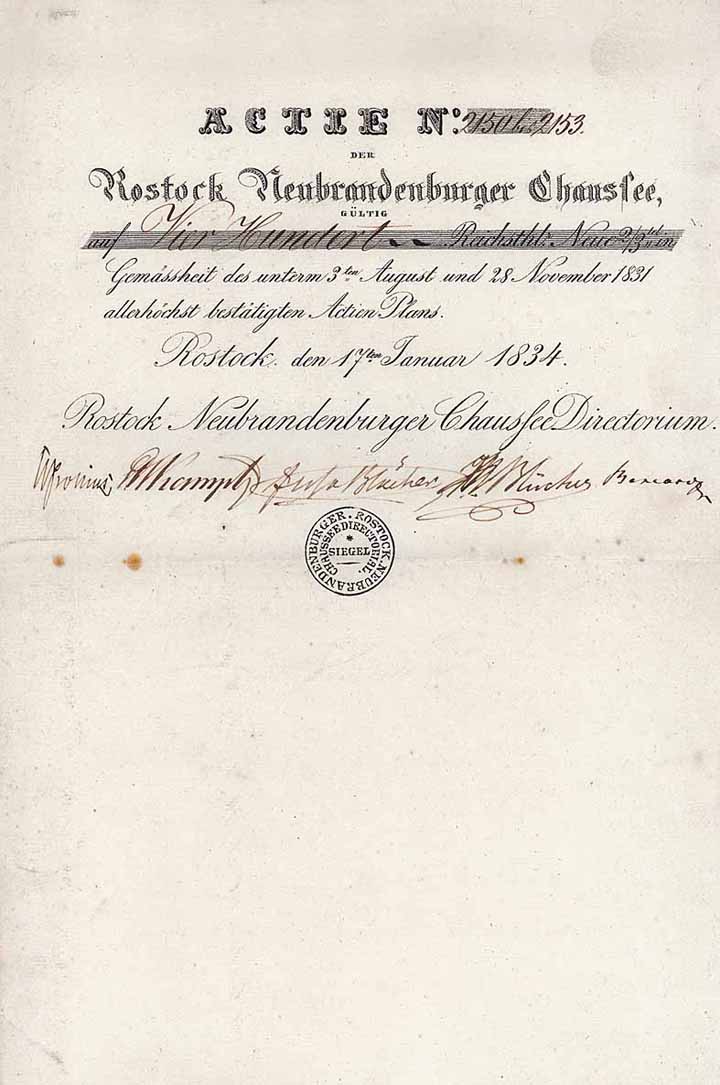 ACTIE No. 2150 bis 2153.
DER
Rostock Neubrandenburger Chaussee,
GÜLTIG
auf Vier Hundert Reichsthl: Neue 2/3tel in
Gemässheit des unterm 3ten August und 28 November 1831
allerhöchst bestätigten Actien Plans.
Rostock. den 17ten Januar 1834.
Rostock Neubrandenburger Chaussee Directorium.
Blücher
ROSTOCK. NEUBRANDENBURGER.
CHAUSSEE DIRECTORIAL.
SIEGEL